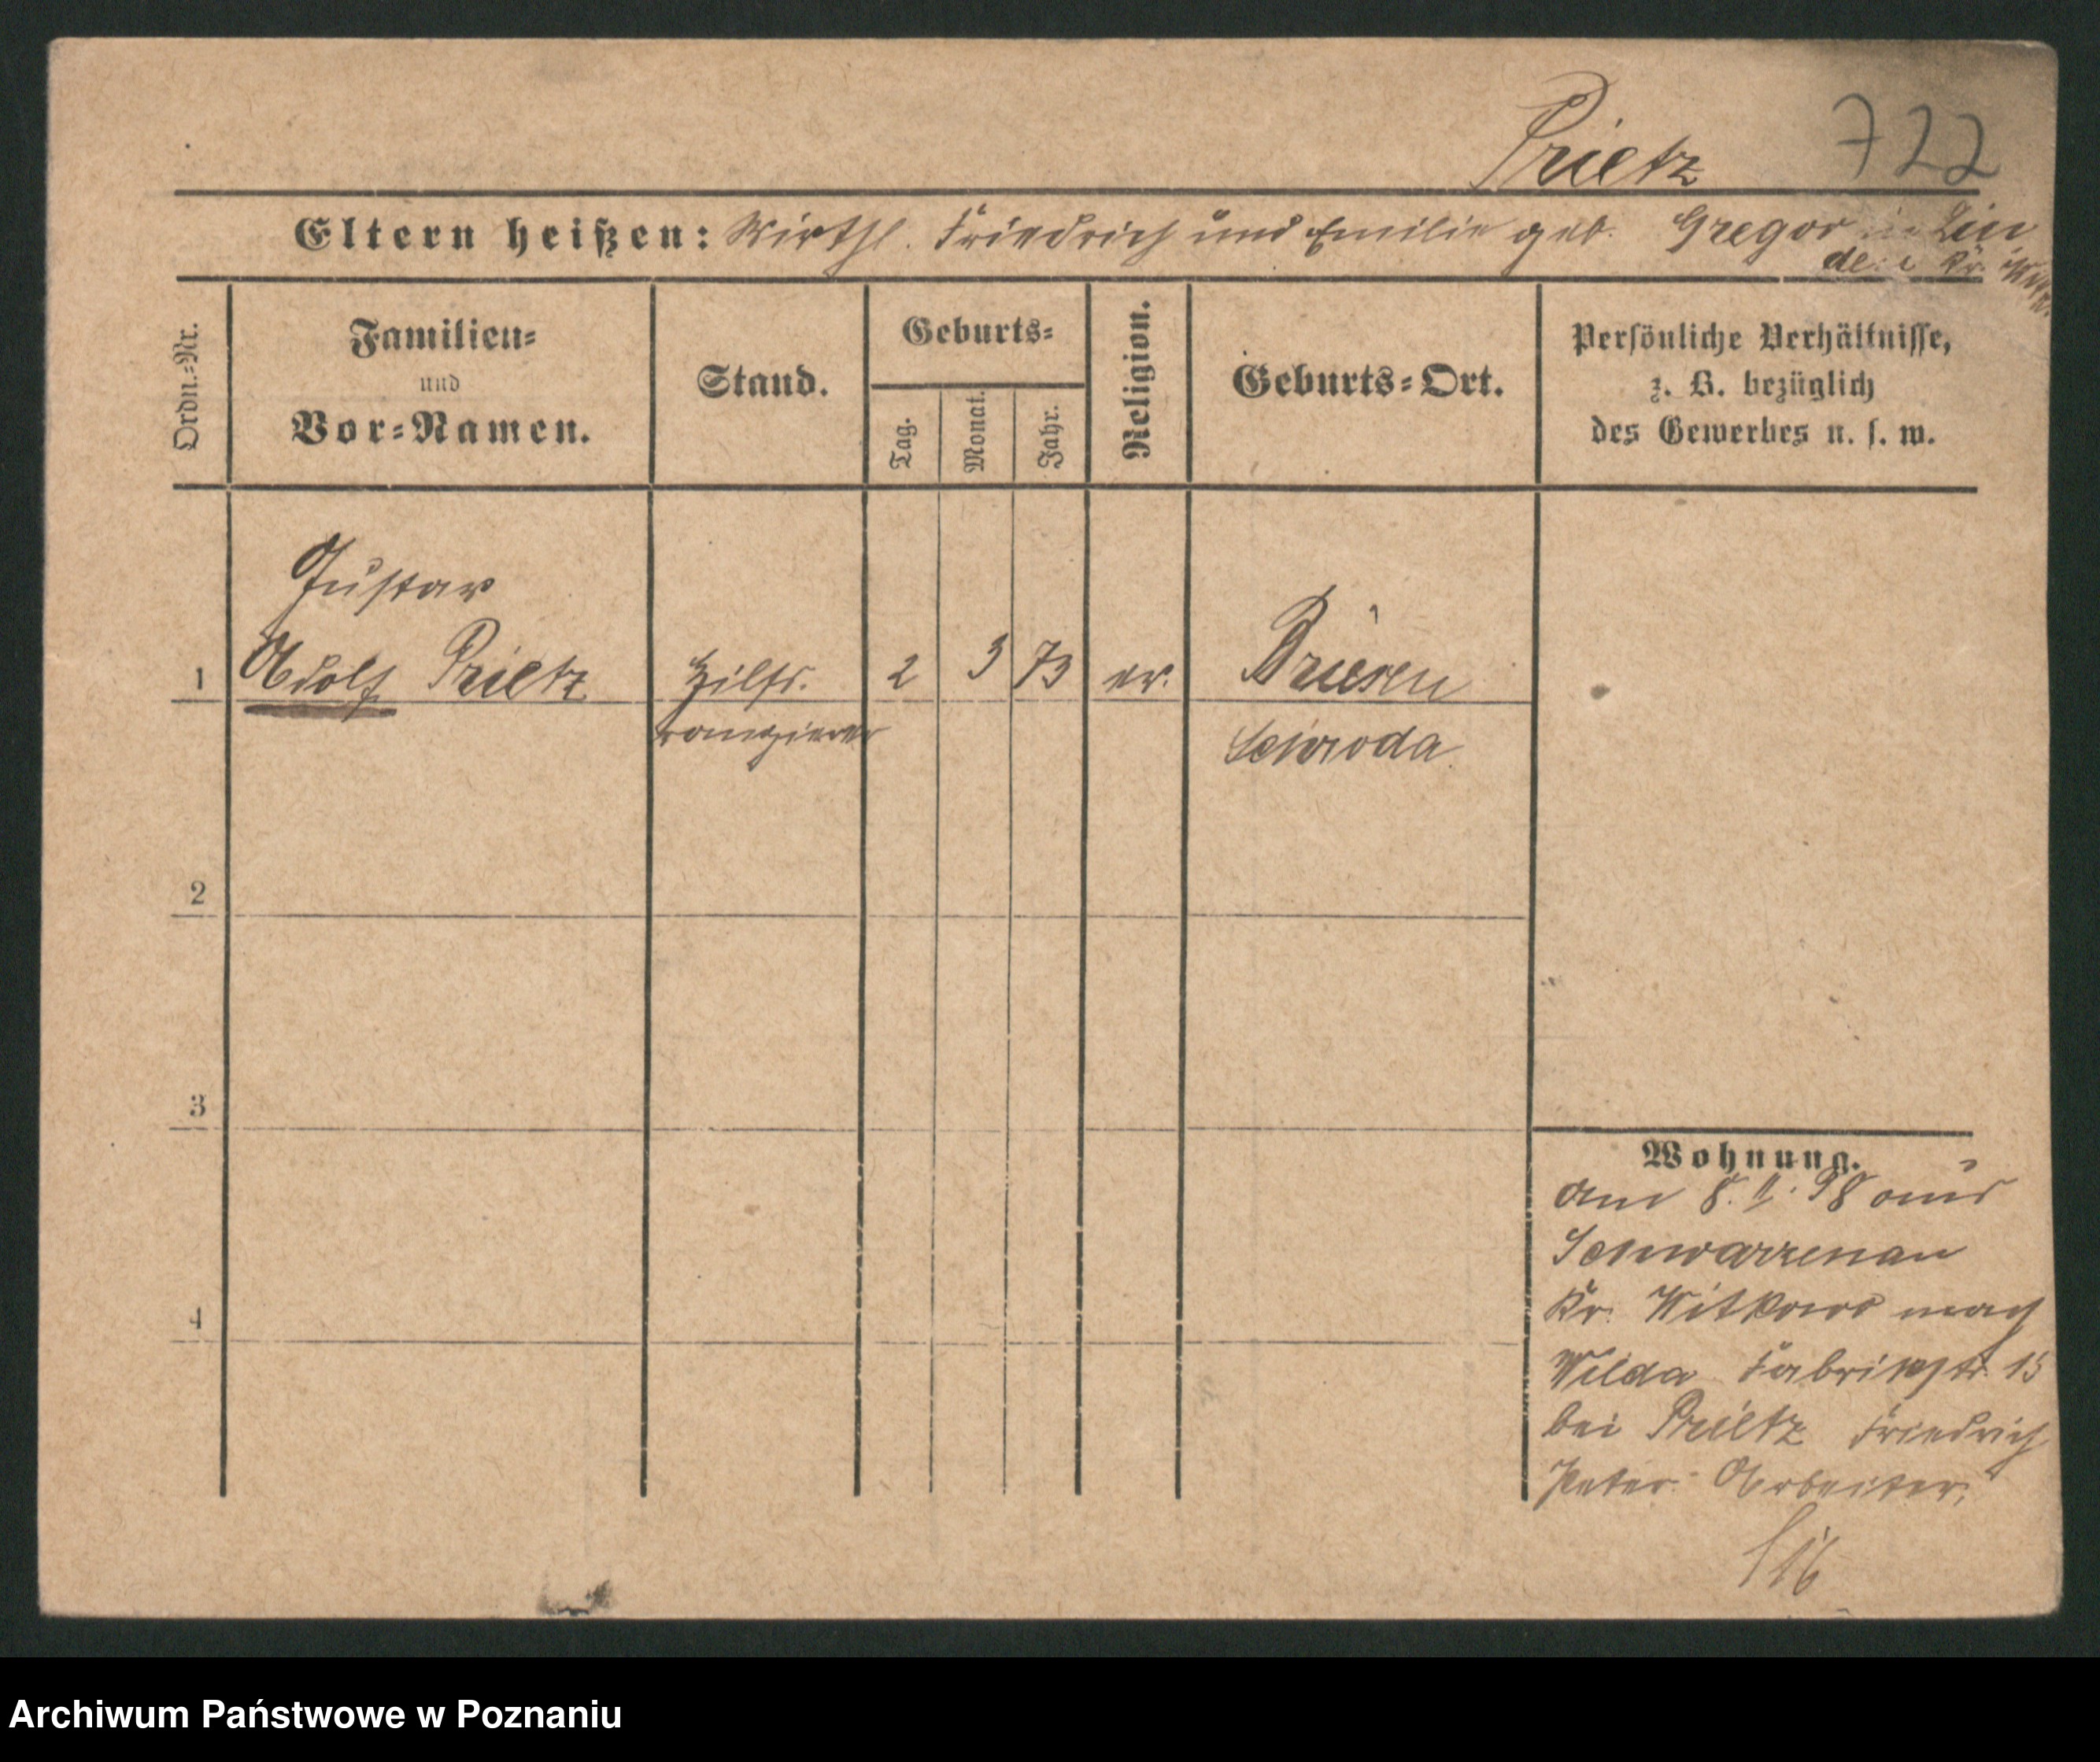 Prietz 722
Eltern heißen: Wirthsl. Friedrich und Emilie geb. Gregor in Lin
de Kr.
Ordn.-Nr.
Familien-
und
Vor-Namen.
Stand.
Geburts-
Tag.
Monat.
Jahr.
Religion.
Geburts-Ort.
Persönliche Verhältnisse,
z. B. bezüglich
des Gewerbes u. s. w.
Gustav
1 Adolf Prietz Hilfs. 2 3 73 ev. Briesen
rangierer Schroda
2
3
4
Wohnung.
am 8. II. 98 aus
Schwarzenau
Kr. Witkowo nach
Wilda Fabrikstr. 15
bei Prietz Friedrich
Peter Arbeiter,